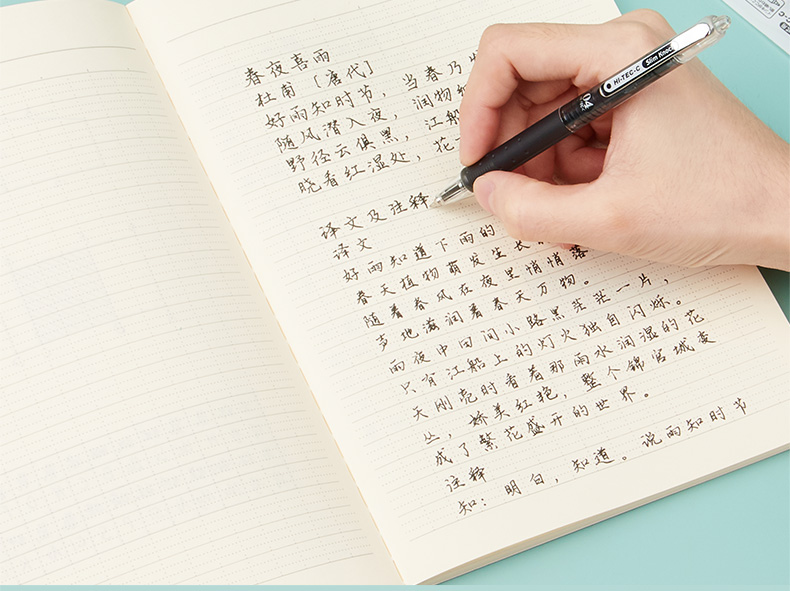 春夜喜雨
杜甫〔唐代〕
好雨知时节，当春乃
随风潜入夜，润物
野径云俱黑，江船
晓看红湿处，花
译文及注释
译文
好雨知道下雨的
春天植物萌发生长
随着春风在夜里悄悄落
声地滋润着春天万物。
雨夜中田间小路黑茫茫一片，
只有江船上的灯火独自闪烁。
天刚亮时看着那雨水润湿的花
丛，娇美红艳，整个锦官城变
成了繁花盛开的世界。
注释
知：明白，知道。说雨知时节
HI-TEC-C Slim Knock